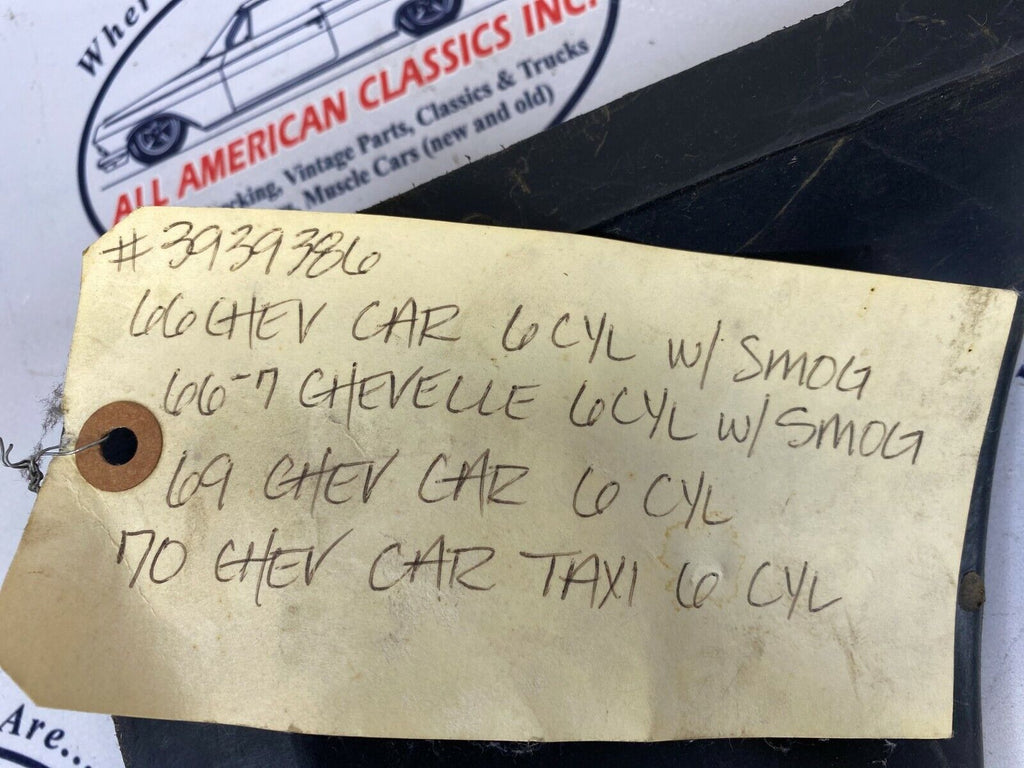 Wher
ALL AMERICAN CLASSICS INC.
cking, Vintage Parts, Classics & Trucks
Muscle Cars (new and old)
#3939386
66 CHEV CAR 6 CYL W/ SMOG
66-7 CHEVELLE 6 CYL W/ SMOG
69 CHEV CAR 6 CYL
70 CHEV CAR TAXI 6 CYL
Are...